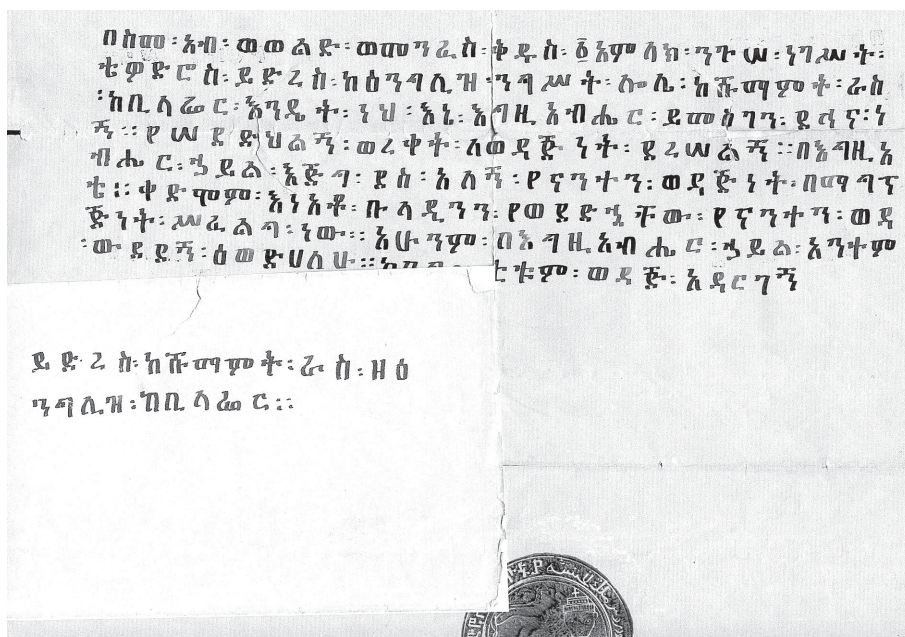 በስመ፡አብ፡ወወልድ፡ወመንፈስ፡ቅዱስ፡፩አምላክ፡ንጉሠ፡ነገሥት፡
ቴዎድሮስ፡ይድረስ፡ከዕንግሊዝ፡ንግሥት፡ሎሌ፡ከሹማምት፡ራስ
፡ከቢላፊር፡እንዴት፡ነህ፡እኔ፡እግዚአብሔር፡ይመስገን፡ደኅና፡ነ
ኝ፡፡የሠደድህልኝ፡ወረቀት፡ለወዳጅነት፡ደረሠልኝ፡፡በእግዚአ
ብሔር፡ኃይል፡እጅግ፡ደስ፡አለኝ፡የናንተን፡ወዳጅነት፡በማግኘ
ቴ፡፡ቀድሞም፡እነአቶ፡ቡላዲንን፡የወደድኋቸው፡የናንተን፡ወዳ
ጅነት፡ሥፈልግ፡ነው፡፡አሁንም፡በእግዚአብሔር፡ኃይል፡አንተም
፡ውደደኝ፡ዕወድሀለሁ፡፡ ወዳጅ፡አዳርገኝ
ይድረስ፡ከሹማምት፡ራስ፡ዘዕ
ንግሊዝ፡ከቢላፊር፡፡